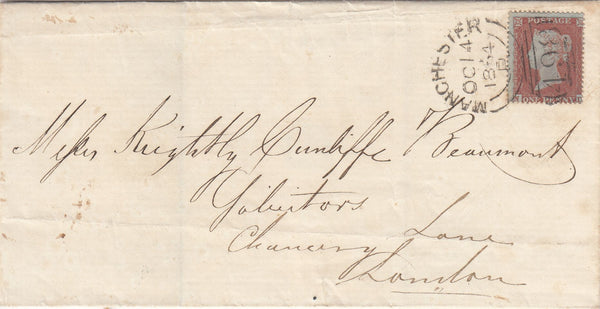 MANCHESTER
OC 14
1854
POSTAGE
498
ONE PENNY
Messrs Knightly Cunliffe Beaumont
Solicitors
Chancery Lane
London